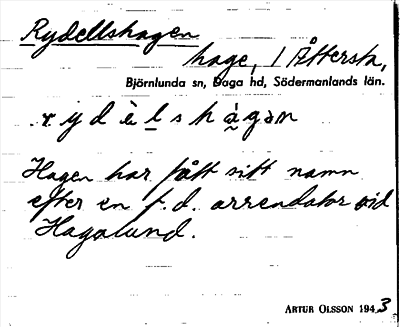 Rydellshagen
hage, 1 Åttersta,
Björnlunda sn, Daga hd, Södermanlands län.
.rydèlshàgən
Hagen har fått sitt namn
efter en f.d. arrendator vid
Hagalund.
ARTUR OLSSON 1943